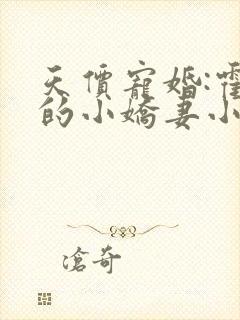 天價寵婚:霍
的小嬌妻小
滄奇